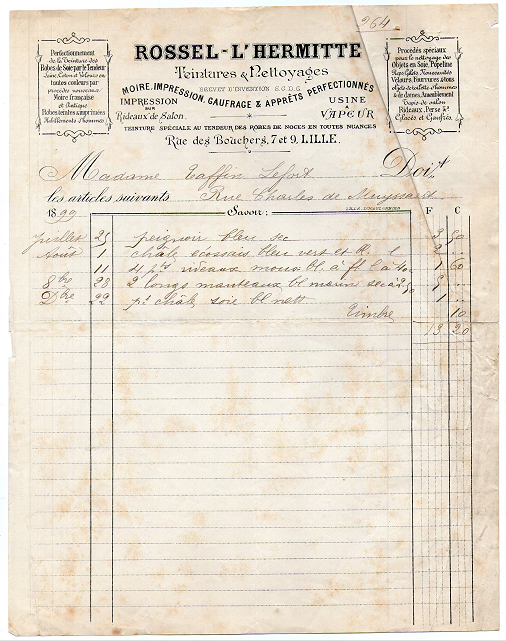 264
ROSSEL-L'HERMITTE
Teintures & Nettoyages
MOIRE, IMPRESSION, GAUFRAGE & APPRÊTS PERFECTIONNÉS
BREVET D'INVENTION S.G.D.G.
IMPRESSION
SUR
Rideaux de Salon
USINE
À
VAPEUR
TEINTURE SPÉCIALE AU TENDEUR DES ROBES DE NOCES EN TOUTES NUANCES
Rue des Bouchers, 7 et 9, LILLE.
Perfectionnement
de la Teinture des
Robes de Soie par le Tendeur
Laine, Coton et Velours en
toutes couleurs par
procédés nouveaux
Moire française
et Antique
Robes teintes & imprimées
Habillements d'hommes
Procédés spéciaux
pour le nettoyage des
Objets en Soie, Popeline
Velours, Fourrures & tous
objets de toilette d'hommes
& de dames, Ameublement
Tapis de salon
Rideaux, Perse &
Glacés et Gaufrés.
Madame Taffin Lefort Doit
les articles suivants Rue Charles de Muyssart
1899 Savoir: F C
Juillet 25 peignoir bleu sec 3 50
Aout 1 chale ecossais bleu vert et 2 ..
11 4 rideaux 1 60
8bre 28 2 longs manteaux bl marin sec à
Dbre 22 pt chale soie bl nett 1 ..
Timbre 10
13 20